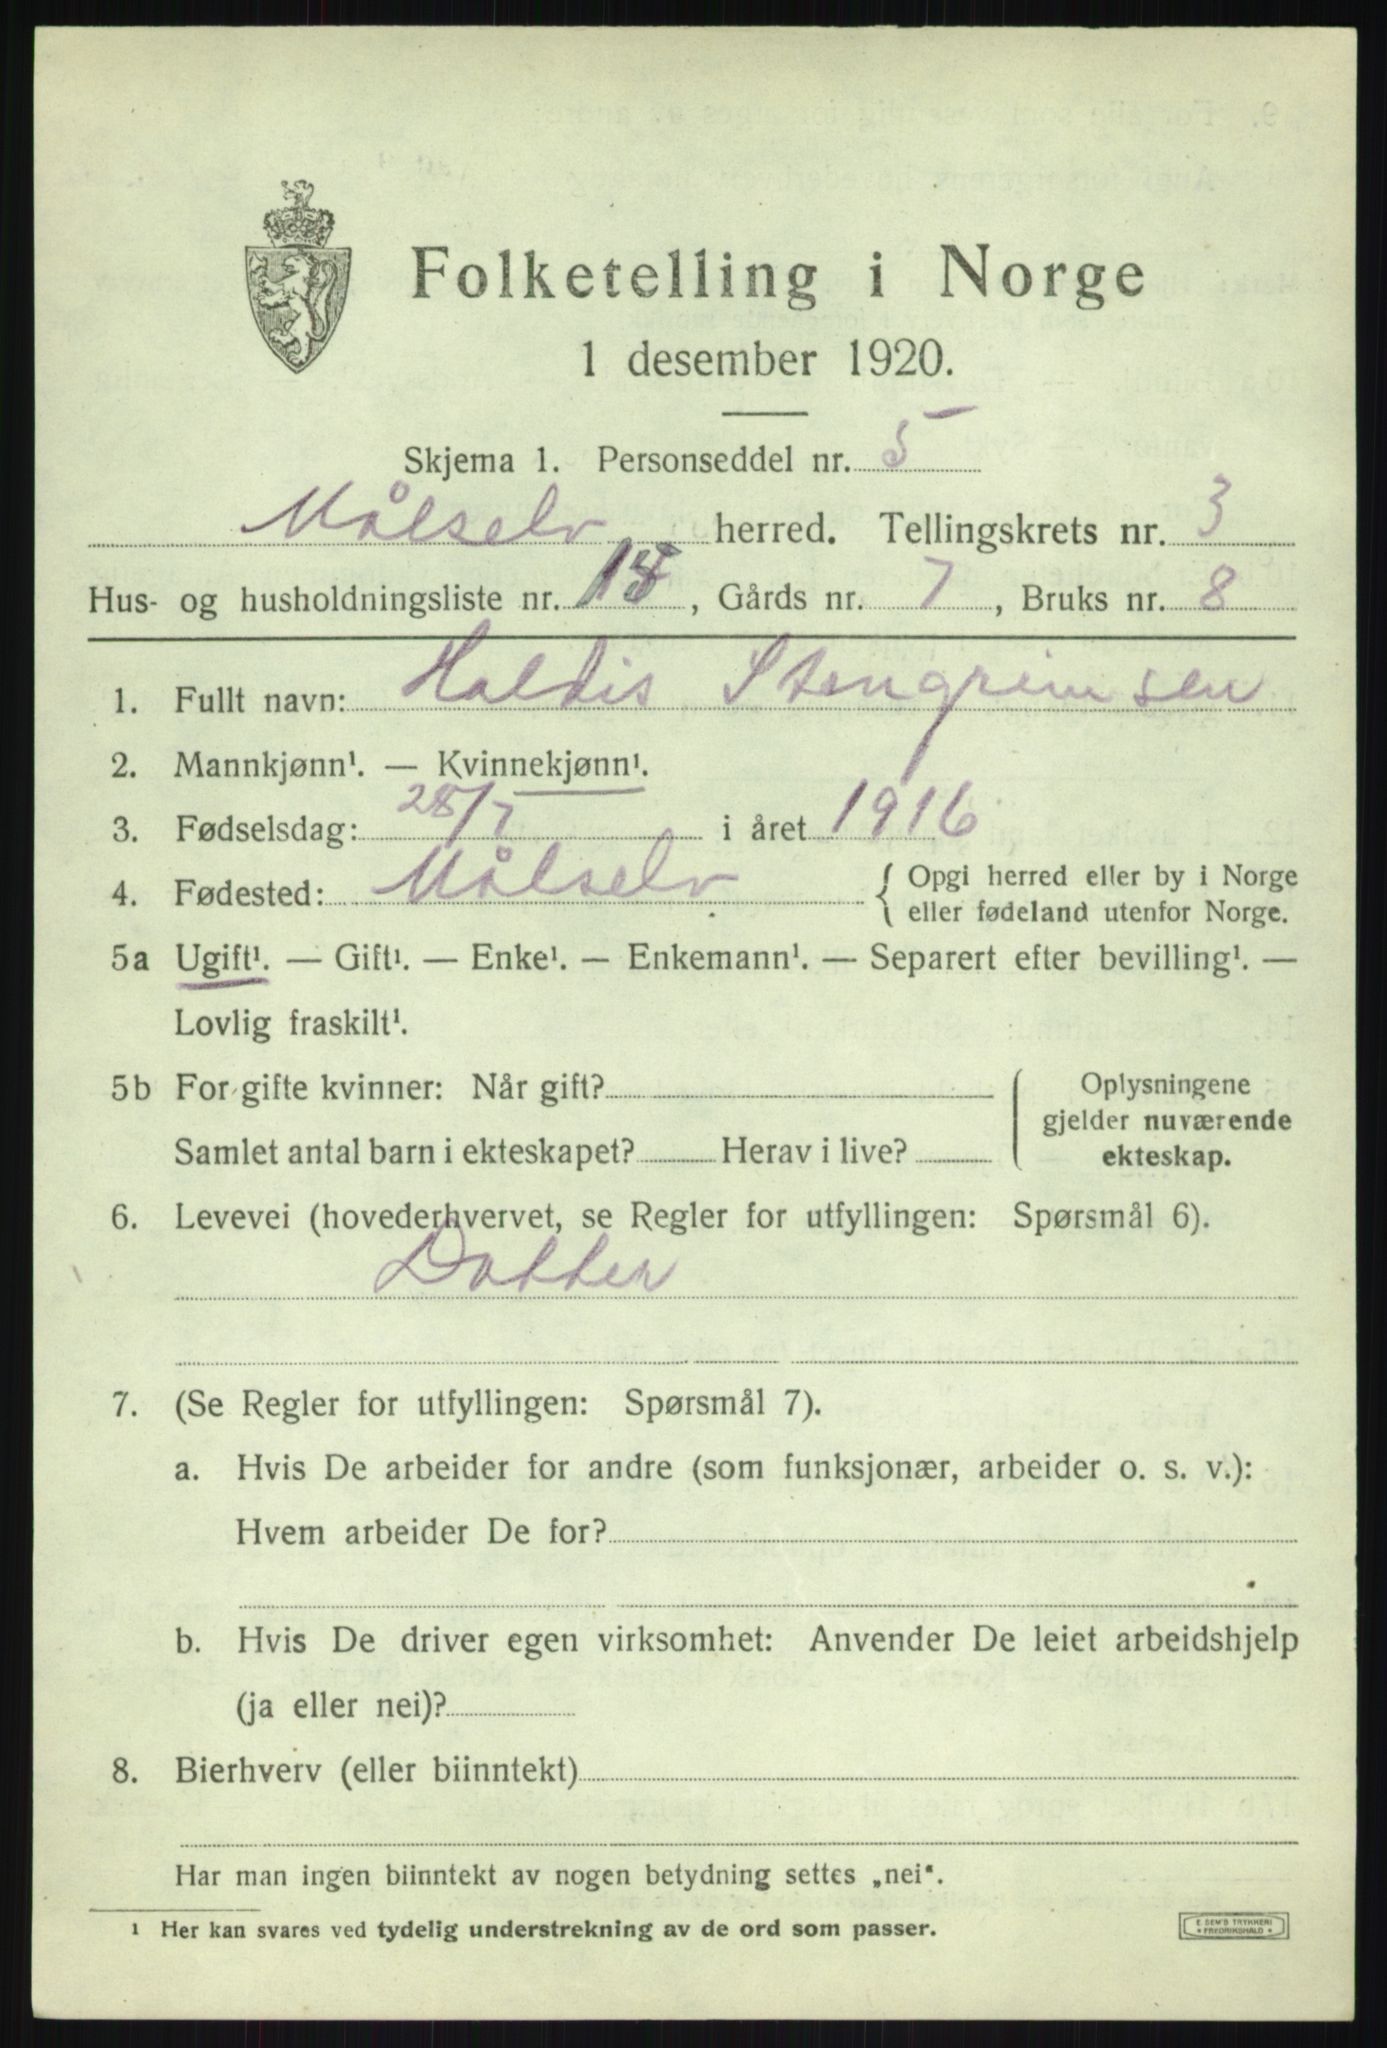 Folketelling i Norge
1 desember 1920.
Skjema 1. Personseddel nr. 5
Målselv herred. Tellingskrets nr. 3
Hus- og husholdningsliste nr. 18, Gårds nr. 7, Bruks nr. 8
1. Fullt navn: Haldis Stengrimsen
2. Mannkjønn¹. — Kvinnekjønn¹.
3. Fødselsdag: 28/7 i året 1916
4. Fødested: Målselv { Opgi herred eller by i Norge
eller fødeland utenfor Norge.
5a Ugift¹. — Gift¹. — Enke¹. — Enkemann¹. — Separert efter bevilling¹. —
Lovlig fraskilt¹.
5b For gifte kvinner: Når gift? Oplysningene
gjelder nuværende
Samlet antal barn i ekteskapet? Herav i live? ekteskap.
6. Levevei (hovederhvervet, se Regler for utfyllingen: Spørsmål 6).
Datter
7. (Se Regler for utfyllingen: Spørsmål 7).
a. Hvis De arbeider for andre (som funksjonær, arbeider o. s. v.):
Hvem arbeider De for?
b. Hvis De driver egen virksomhet: Anvender De leiet arbeidshjelp
(ja eller nei)?
8. Bierhverv (eller biinntekt)
Har man ingen biinntekt av nogen betydning settes „nei“.
¹ Her kan svares ved tydelig understrekning av de ord som passer.
E. SEM'S TRYKKERI
* FREDRIKSHALD *